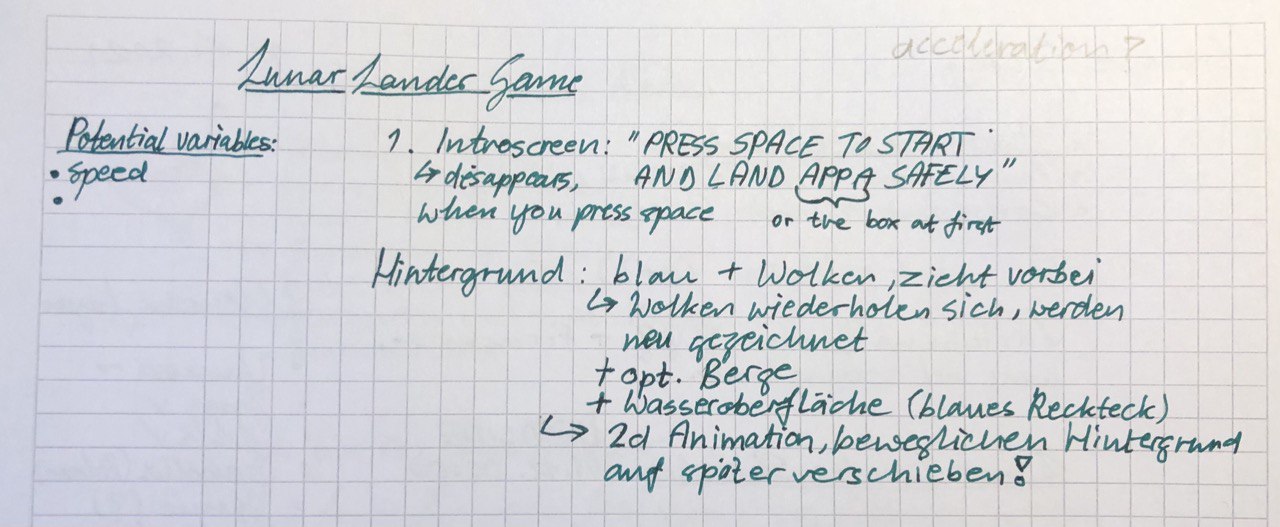 acceleration?
Lunar Lander Game
Potential variables:
• speed
•
1. Introscreen: "PRESS SPACE TO START
↳ disappears, AND LAND APPA SAFELY"
when you press space or the box at first
Hintergrund: blau + Wolken, zieht vorbei
↳ Wolken wiederholen sich, werden
neu gezeichnet
+ opt. Berge
+ Wasseroberfläche (blaues Reckteck)
↳ 2d Animation, beweglichen Hintergrund
auf später verschieben!